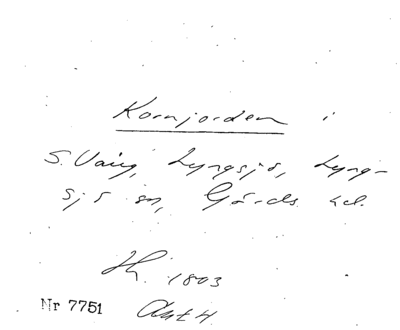 Kornjorden i
S. Vång, Lyngsjö, Lyng-
sjö sn, Gärds hd.
1803
Nr 7751 Akt 4